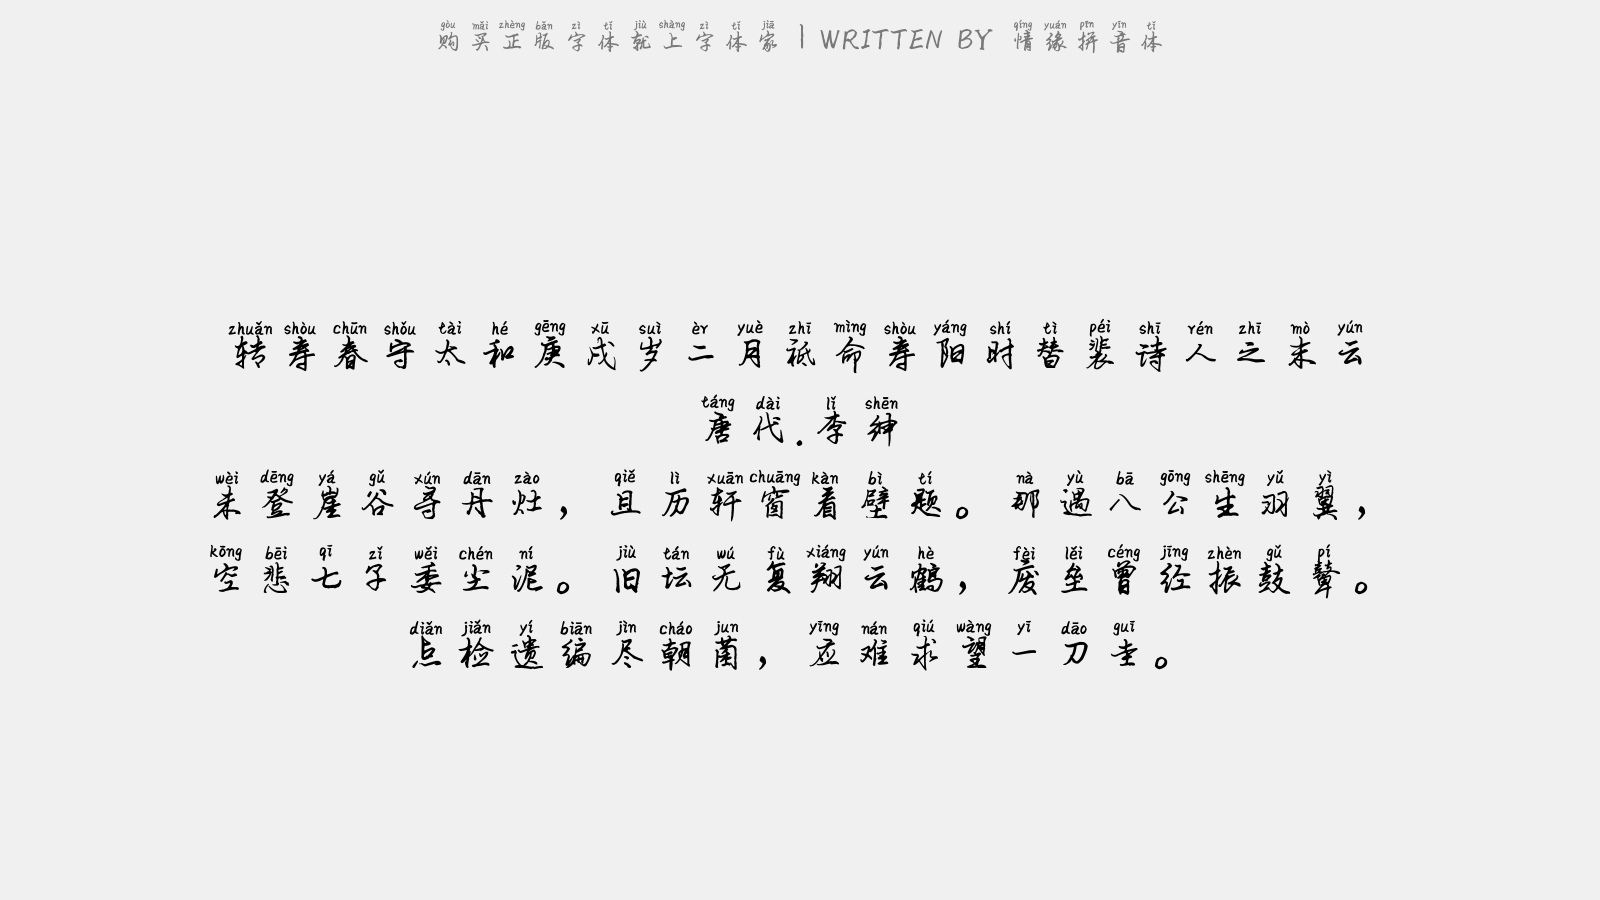 gòu mǎi zhèng bǎn zì tǐ jiù shàng zì tǐ jiā qíng yuán pīn yīn tǐ
购买正版字体就上字体家 | WRITTEN BY 情缘拼音体
zhuǎn shòu chūn shǒu tài hé gēng xū suì èr yuè zhī mìng shòu yáng shí tì péi shī rén zhī mò yún
转寿春守太和庚戌岁二月祗命寿阳时替裴诗人之末云
táng dài lǐ shēn
唐代.李绅
wèi dēng yá gǔ xún dān zào qiě lì xuān chuāng kàn bì tí nà yù bā gōng shēng yǔ yì
未登崖谷寻丹灶，且历轩窗看壁题。那遇八公生羽翼，
kōng bēi qī zǐ wěi chén ní jiù tán wú fù xiáng yún hè fèi lěi céng jīng zhèn gǔ pí
空悲七子委尘泥。旧坛无复翔云鹤，废垒曾经振鼓鼙。
diǎn jiǎn yí biān jìn cháo jun yīng nán qiú wàng yī dāo guī
点检遗编尽朝菌，应难求望一刀圭。